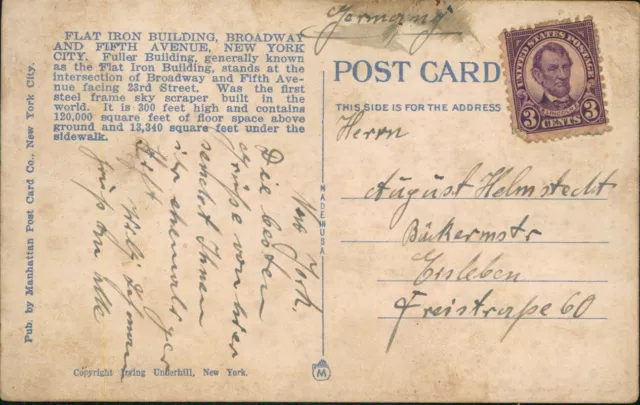 FLAT IRON BUILDING, BROADWAY
AND FIFTH AVENUE, NEW YORK
CITY. Fuller Building, generally known
as the Flat Iron Building, stands at the
intersection of Broadway and Fifth Ave-
nue facing 23rd Street. Was the first
steel frame sky scraper built in the
world. It is 300 feet high and contains
120,000 square feet of floor space above
ground and 13,340 square feet under the
sidewalk.
Pub. by Manhattan Post Card Co., New York City.
New York,
Die besten
Grüße von hier
sendet Ihnen
ihr ehemaliger
Willy
Gruß an alle
Copyright Irving Underhill, New York.
MADE IN U.S.A.
M
Germany
POST CARD
THIS SIDE IS FOR THE ADDRESS
UNITED STATES POSTAGE
LINCOLN
3 CENTS 3
Herrn
August Helmstedt
Bäckermstr
Eisleben
Freistraße 60